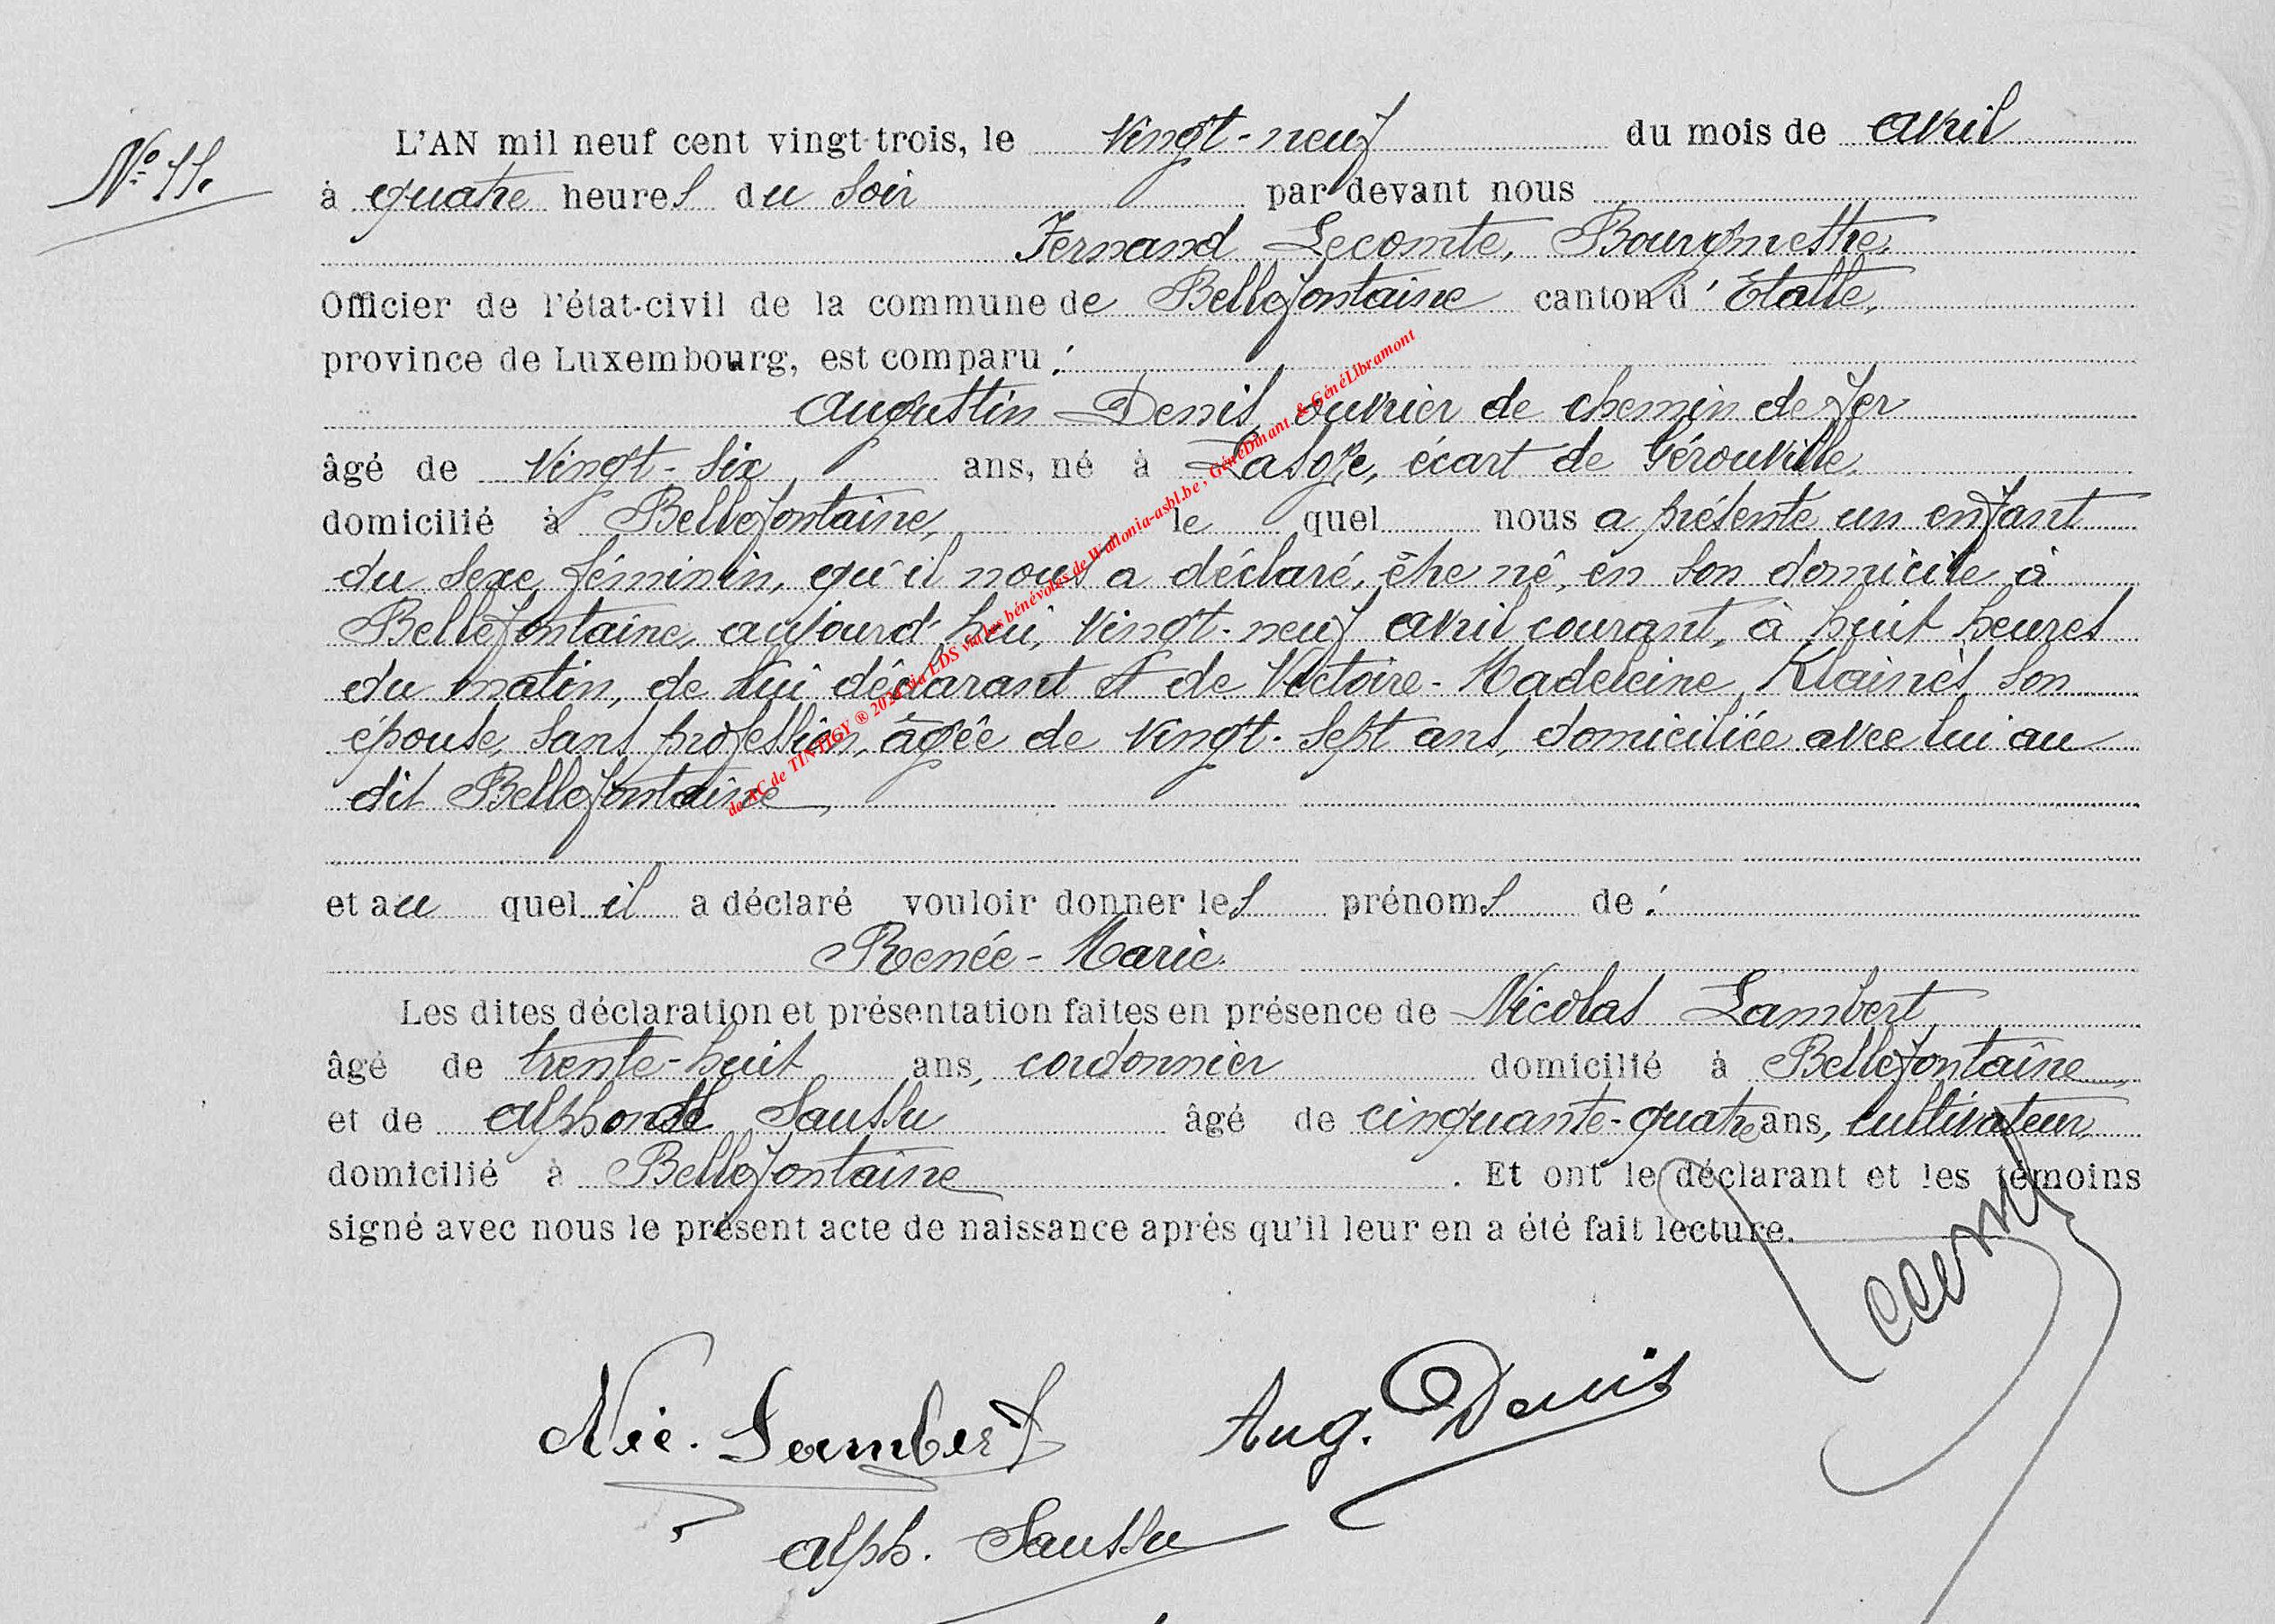 N° 11.
L'AN mil neuf cent vingt-trois, le vingt-neuf du mois de avril
à quatre heures du soir par devant nous
Fernand Lecomte, Bourgmestre,
Officier de l'état-civil de la commune de Bellefontaine canton d'Etalle,
province de Luxembourg, est comparu :
Augustin Denis, ouvrier de chemin de fer
âgé de vingt-six ans, né à Lasoye, écart de Gérouville,
domicilié à Bellefontaine, le quel nous a présenté un enfant
du sexe féminin, qu'il nous a déclaré, être né, en son domicile à
Bellefontaine, aujourd'hui, vingt-neuf avril courant, à huit heures
du matin, de lui déclarant et de Victoire-Madeleine Klainès, son
épouse, sans profession, âgée de vingt-sept ans, domiciliée avec lui au
dit Bellefontaine,
et au quel il a déclaré vouloir donner les prénoms de :
Renée-Marie.
Les dites déclaration et présentation faites en présence de Nicolas Lambert
âgé de trente-huit ans, cordonnier domicilié à Bellefontaine,
et de Alphonse Saussu âgé de cinquante-quatre ans, cultivateur,
domicilié à Bellefontaine . Et ont le déclarant et les témoins
signé avec nous le présent acte de naissance après qu'il leur en a été fait lecture.
Lecomte
Nic. Lambert Aug. Denis
Alph. Saussu
de AC de TINTIGY ® 2024 via LDS via les bénévoles de Wallonia-asbl.be, GénéDinant & GénéLibramont